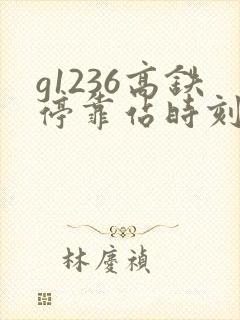 g1236高鉄
停靠佔時刻
林慶禎